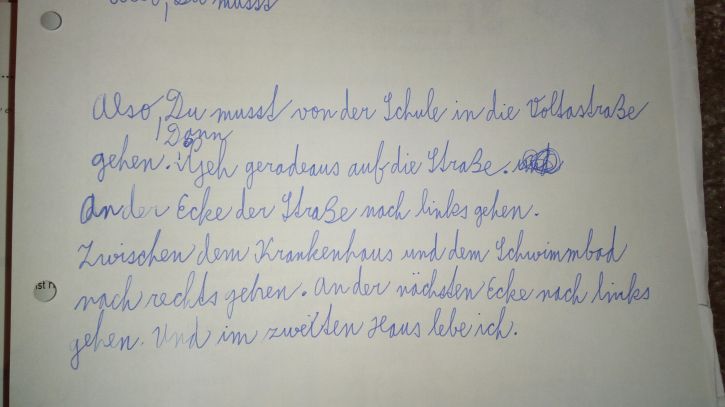 Du musst
Also, Du musst von der Schule in die Voltastraße
Dann
gehen. Geh geradeaus auf die Straße.
An der Ecke der Straße nach links gehen.
Zwischen dem Krankenhaus und dem Schwimmbad
nach rechts gehen. An der nächsten Ecke nach links
gehen. Und im zweiten Haus lebe ich.